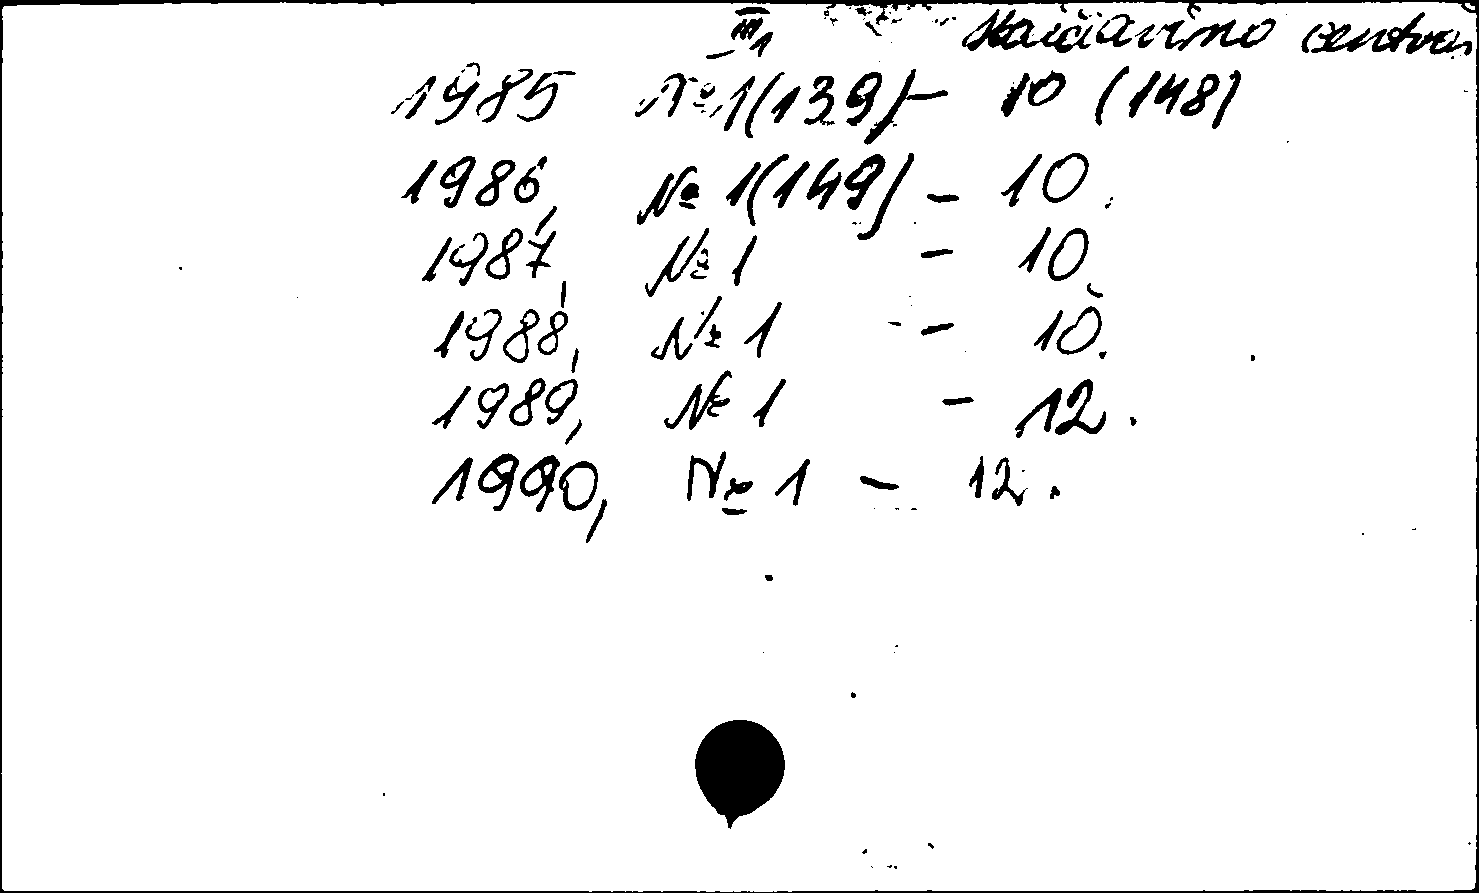 III₁ Skaičiavimo centras
1985 № 1(139) – 10 (148)
1986, № 1(149) – 10.
1987, № 1 – 10.
1988, № 1 – 10.
1989, № 1 – 12.
1990, № 1 – 12.